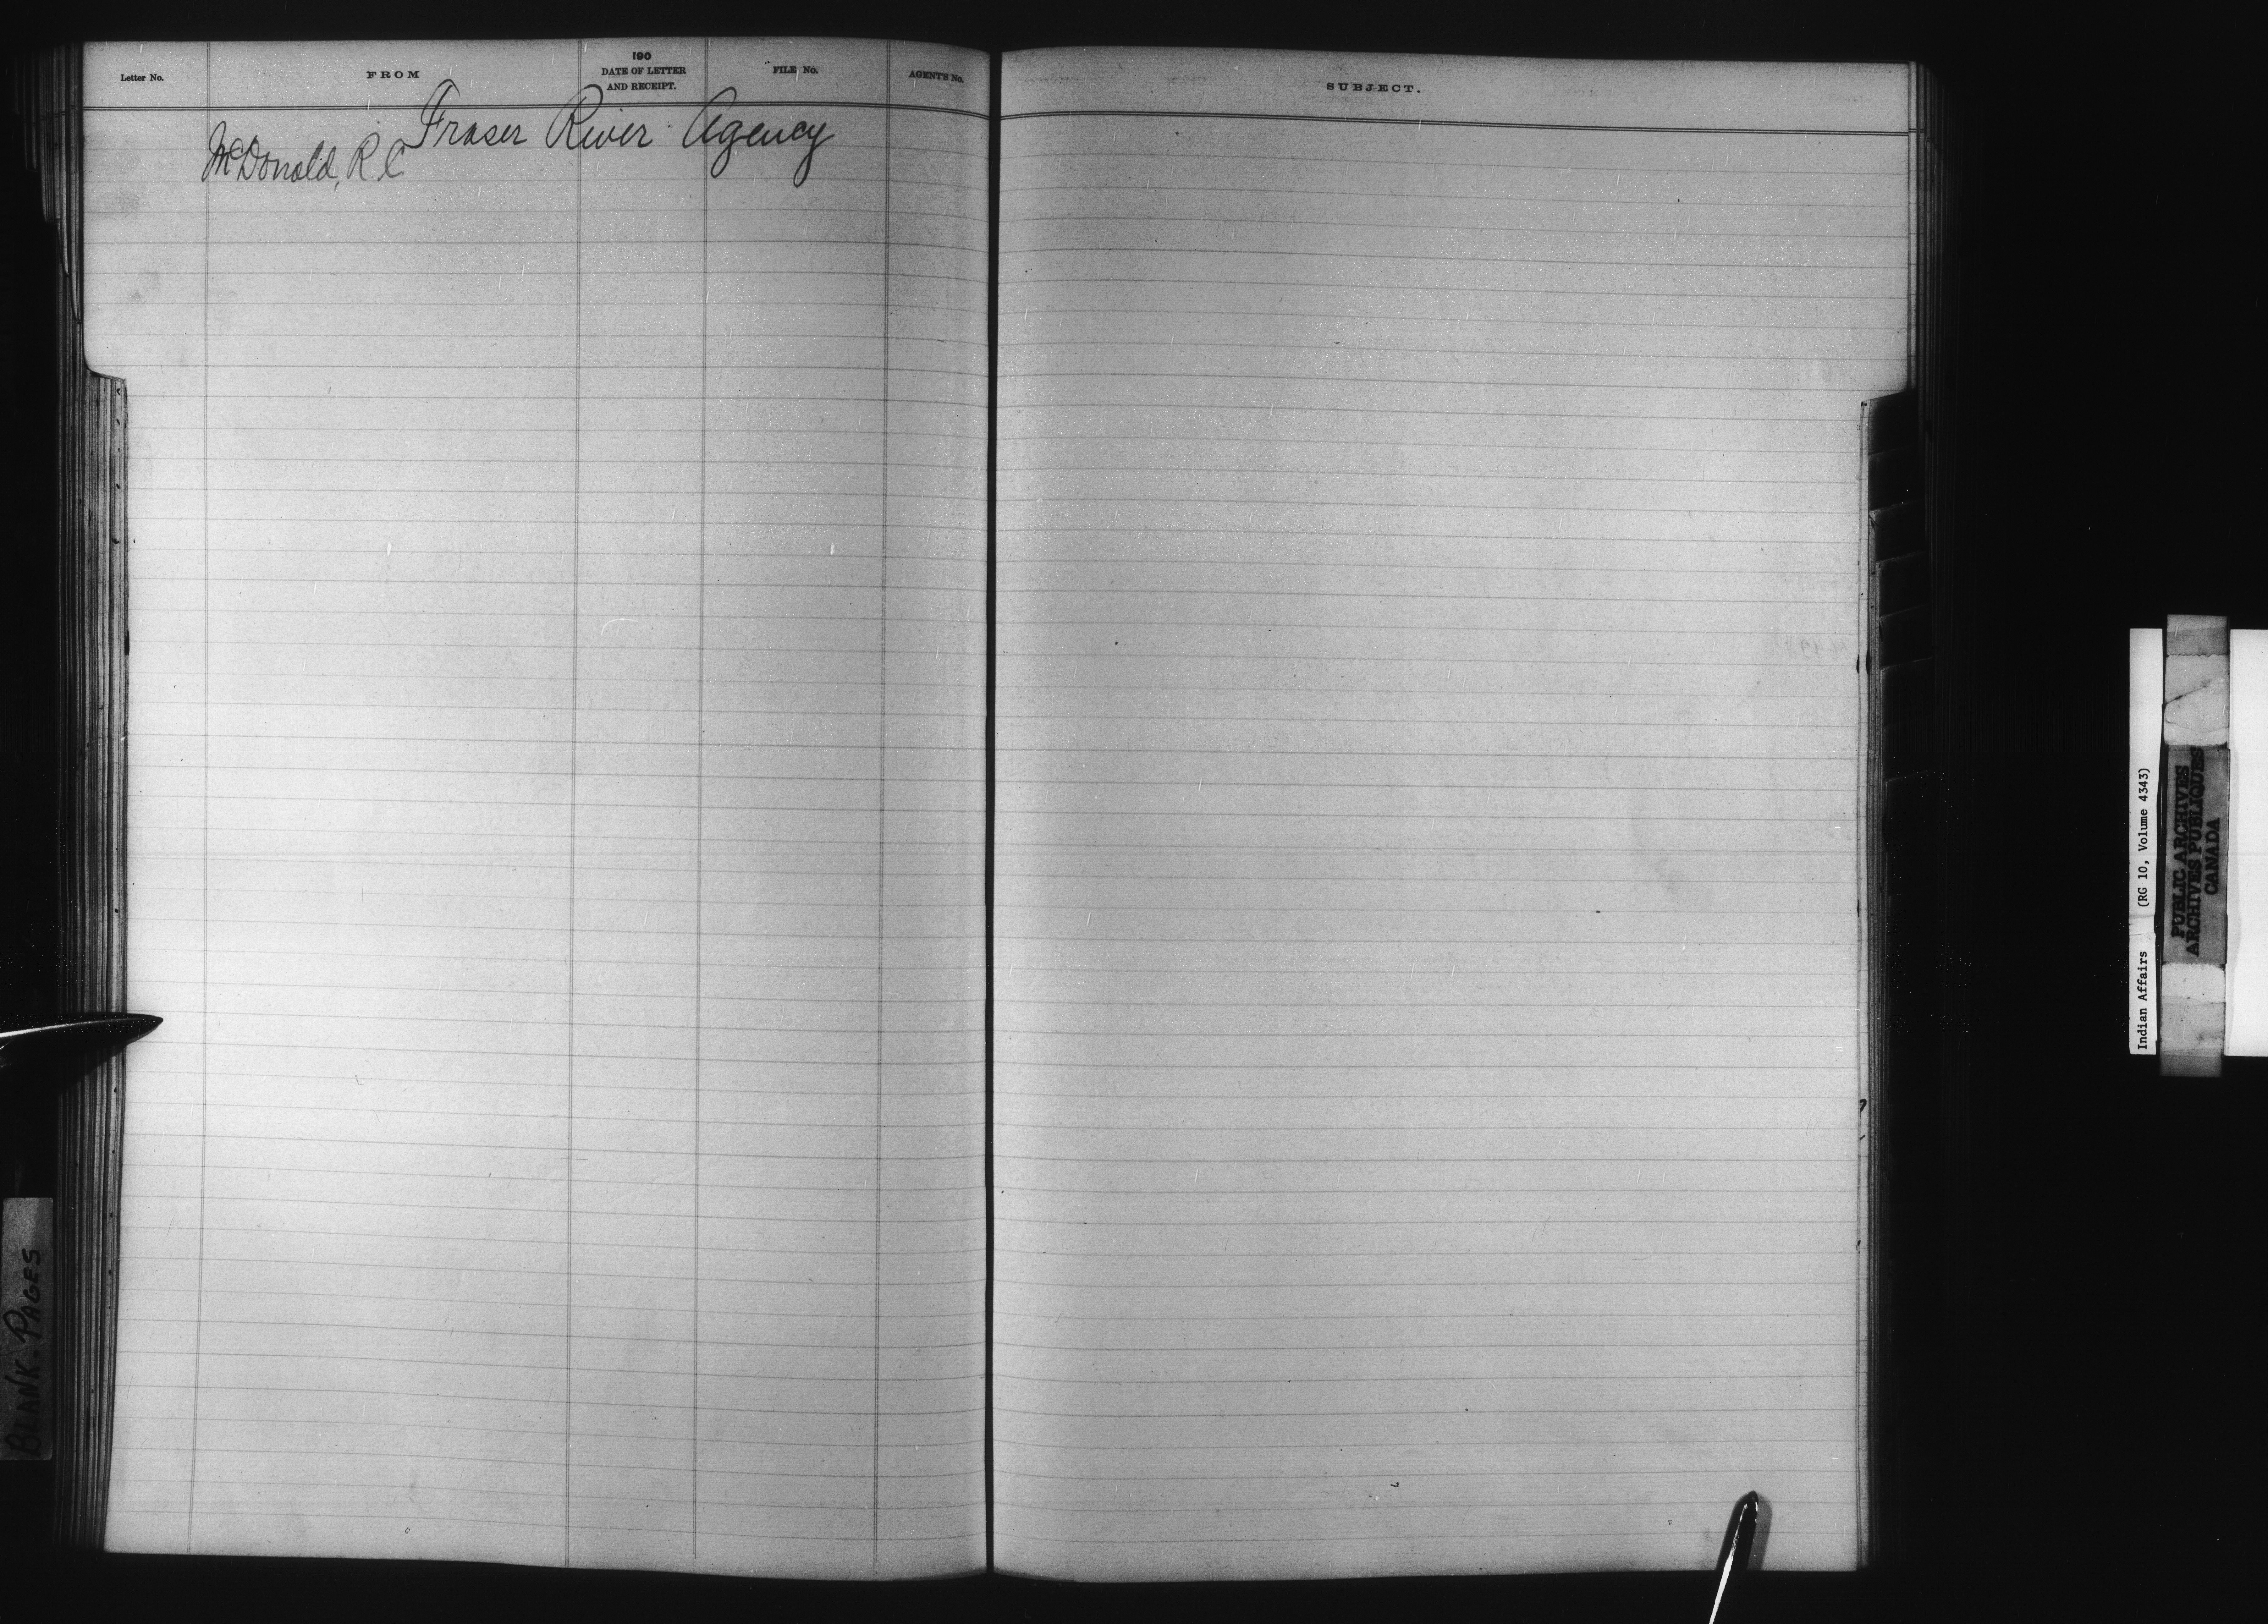 Letter No. FROM 190 DATE OF LETTER AND RECEIPT. FILE No. AGENT'S No. SUBJECT.
Fraser River Agency
McDonald, R C
BLANK-PAGES
Indian Affairs (RG 10, Volume 4343)
PUBLIC ARCHIVES
ARCHIVES PUBLIQUES
CANADA